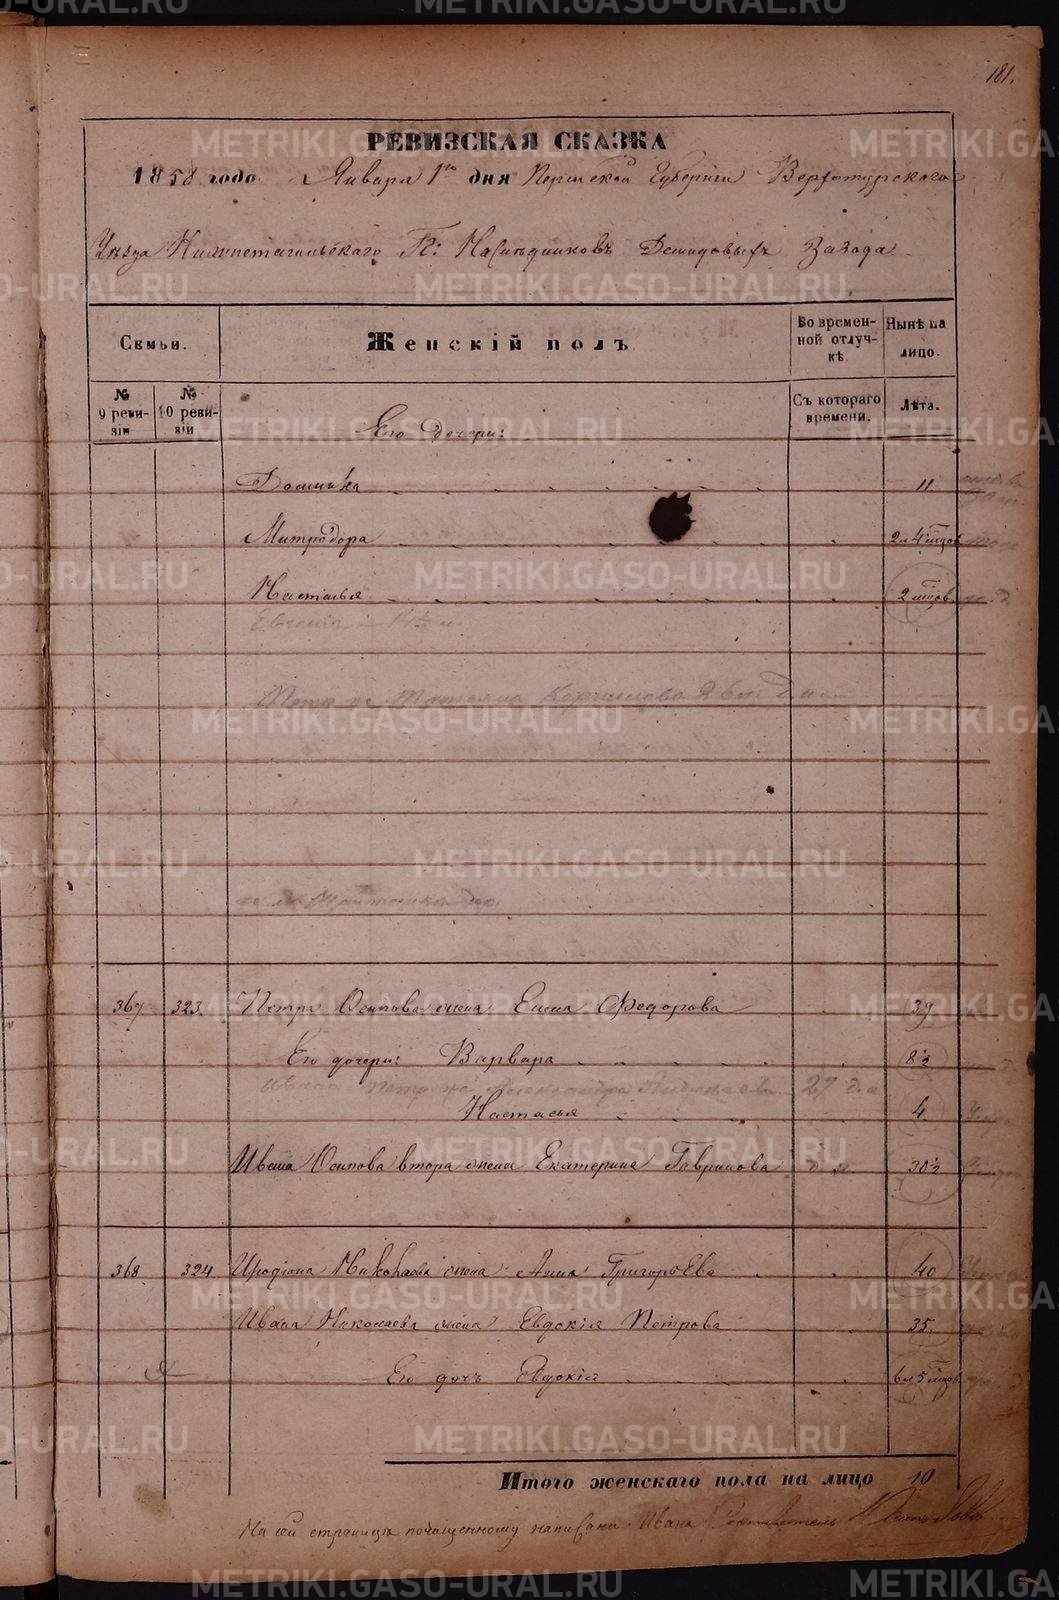 181.
РЕВИЗСКАЯ СКАЗКА
1858 года Января 1го дня Пермской Губернiи Верхотурскаго
Уѣзда Нижнетагильскаго Гг: Наслѣдниковъ Демидовыхъ Завода
Семьи.
Женскiй полъ
Во времен-
ной отлуч-
кѣ.
Нынѣ на
лицо.
№
9 реви-
зiи
№
10 реви-
зiи
Съ котораго
времени.
Лѣта.
Его дочери:
Домника 11
Митродора 2 и 4 мцов
Настасья 2 мцов
Евгенiя
Петр Татьяна
367 323. Петра Осипова жена Елена Федорова 39
Его дочери: Варвара 8½
Александра 27
Настасья 4
Ивана Осипова втора жена Екатерина Гаврилова 30½
368 324 Иродiона Николаева жена Анна Григорьева 40
Ивана Николаева жена Евдокiя Петрова 35.
Его дочь Евдокiя 6 и 5 мцов
Итого женскаго пола на лицо 10
На сей страницѣ почищенному написано Ивана
METRIKI.GASO-URAL.RU